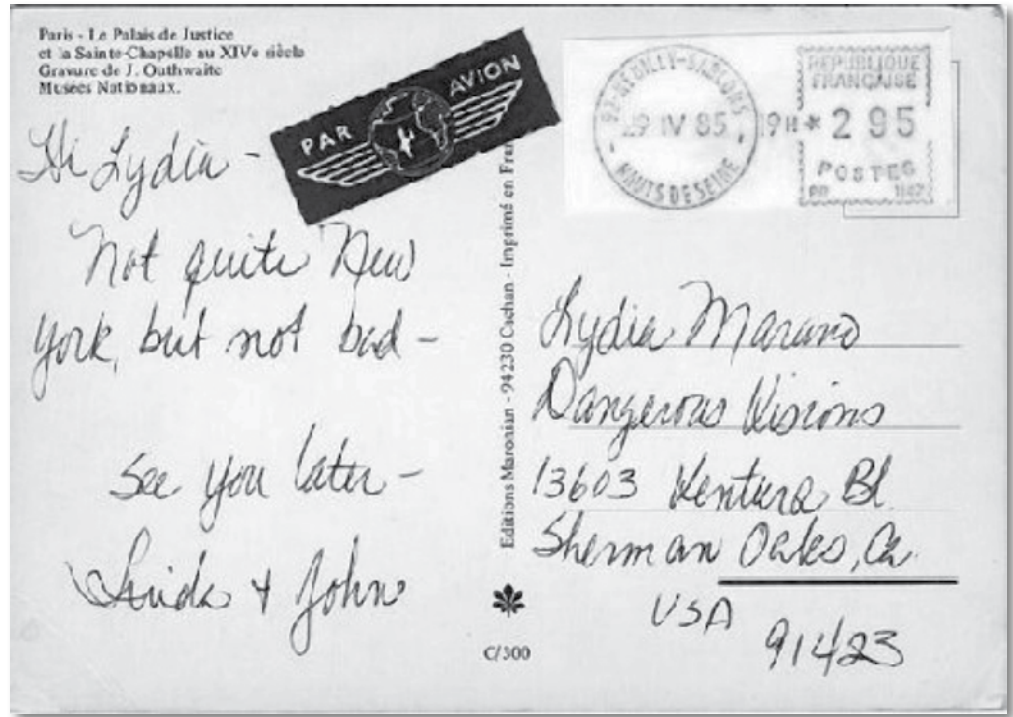 Paris - Le Palais de Justice
et la Sainte-Chapelle au XIVe siècle
Gravure de J. Outhwaite
Musées Nationaux.
PAR AVION
92-NEUILLY-SABLONS
29 IV 85
HAUTS DE SEINE
19H * 2 95
REPUBLIQUE
FRANÇAISE
POSTES
Hi Lydia -
Not quite New
York, but not bad -
See you later -
Linda + John
Editions Maronian - 94230 Cachan - Imprimé en Fran
Lydia Marano
Dangerous Visions
13603 Ventura Bl.
Sherman Oaks, Ca.
USA
91423
C/300